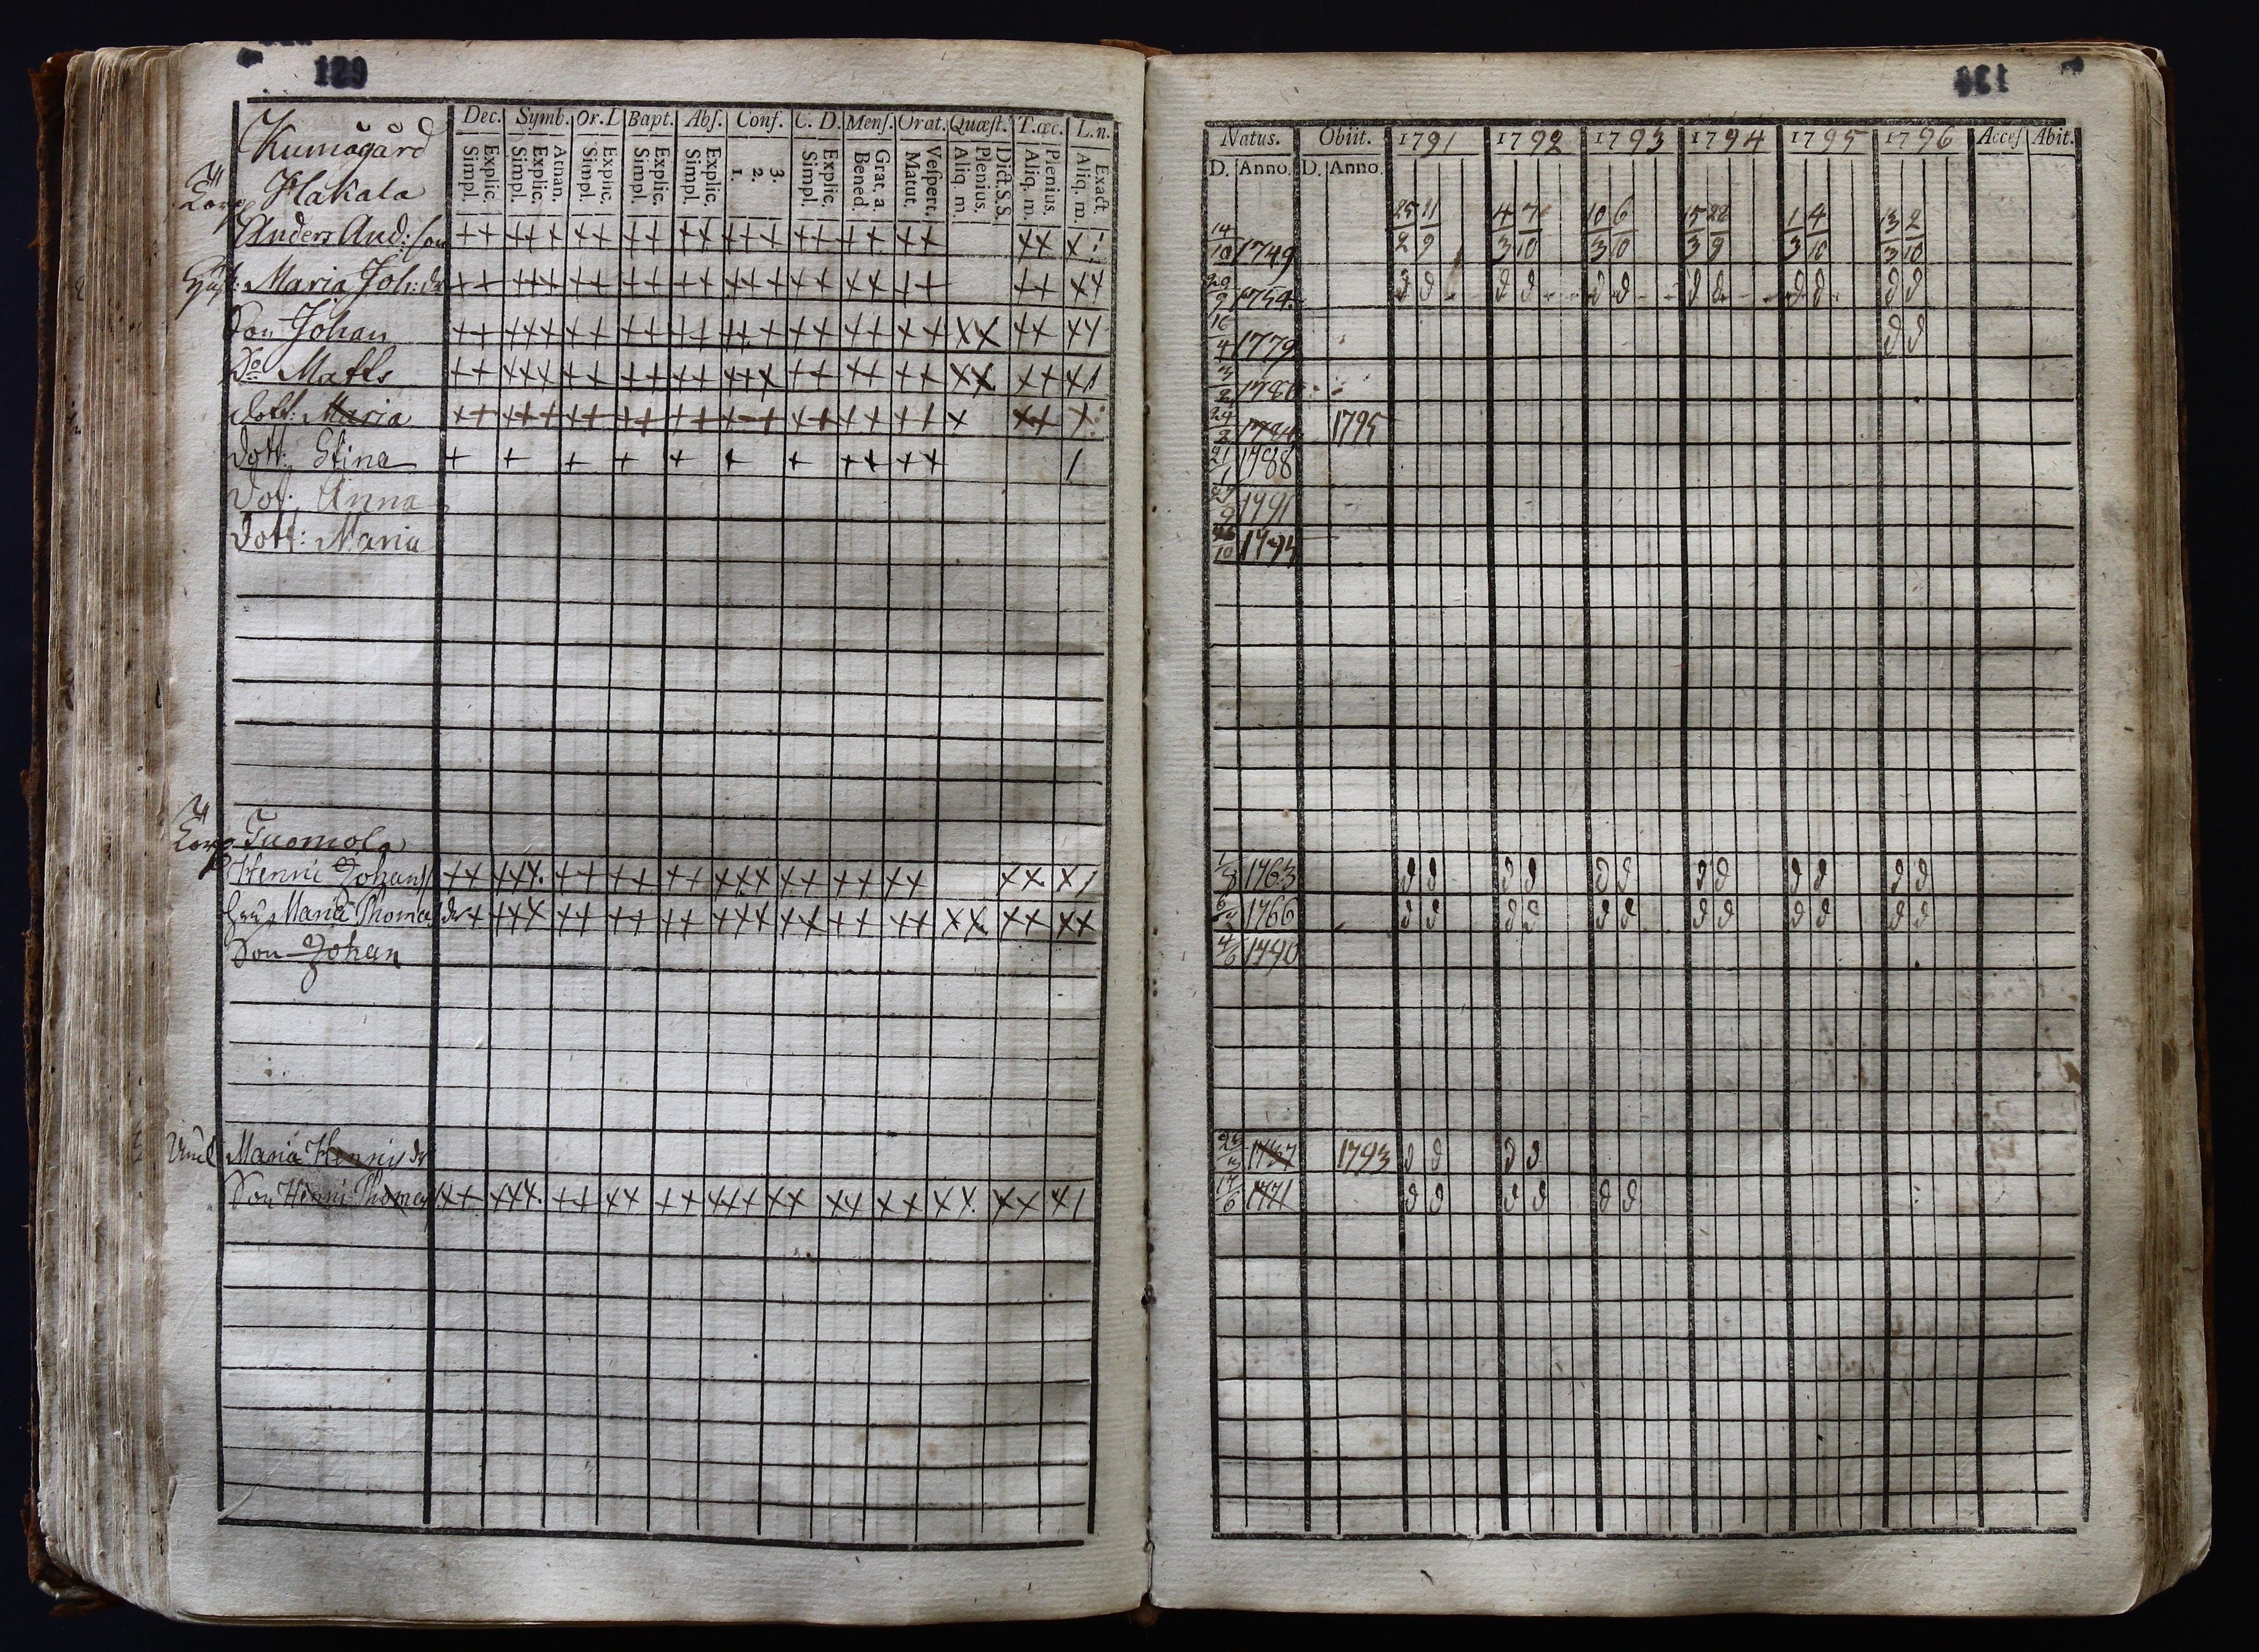 129
Kumogård
Torp Hakala
Dec. Symb. Or. D. Bapt. Abſ. Conf. C. D. Menſ. Orat. Quæſt. T. œc. L. n.
Explic. Simpl. Athan. Explic. Simpl. Explic. Simpl. Explic. Simpl. Explic. Simpl. 3. 2. 1. Explic. Simpl. Grat. a. Bened. Veſpert. Matut. Dict. S.S. Plenius. Aliq. m. Plenius. Aliq. m. Exact. Aliq. m.
Anders And: son ++ +++ ++ ++ ++ +++ ++ ++ ++ ++ +
Hust: Maria Joh: dr ++ +++ ++ ++ ++ +++ ++ ++ ++ ++ ++
Son Johan ++ +++ ++ ++ ++ +++ ++ ++ ++ ++ ++ ++
Do Matts ++ +++ ++ ++ ++ +++ ++ ++ ++ ++ ++ +1
dott: Maria ++ +++ ++ ++ ++ +++ ++ ++ ++ + ++ +
dott: Stina + + + + + + + ++ ++ 1
dot: Anna
dott: Maria
Torp Tuomola
Henric Johans ++ +++ ++ ++ ++ +++ ++ ++ ++ ++ +1
Maria Thomas dr ++ +++ ++ ++ ++ +++ ++ ++ ++ ++ ++ ++
Son Johan
Maria Henrics dr
Son Henric Thomas ++ +++ ++ ++ ++ +++ ++ ++ ++ ++ ++ +1
130
Natus. Obiit. 1791 1792 1793 1794 1795 1796 Acceſ Abit.
D. Anno. D. Anno.
14/10 1749 25/2 11/9 4/3 7/10 10/3 6/10 15/3 28/9 1/3 4/10 13/3 2/10
29/9 1754 d d d d d d d d d d d d
16/4 1779 d d
1786
24/2 1784 1795
21/1 1788
9 1791
10 1795
1763 d d d d d d d d d d d d
1766 d d d d d d d d d d d d
4/6 1790
1737 1793 d d d d
17/6 1771 d d d d d d